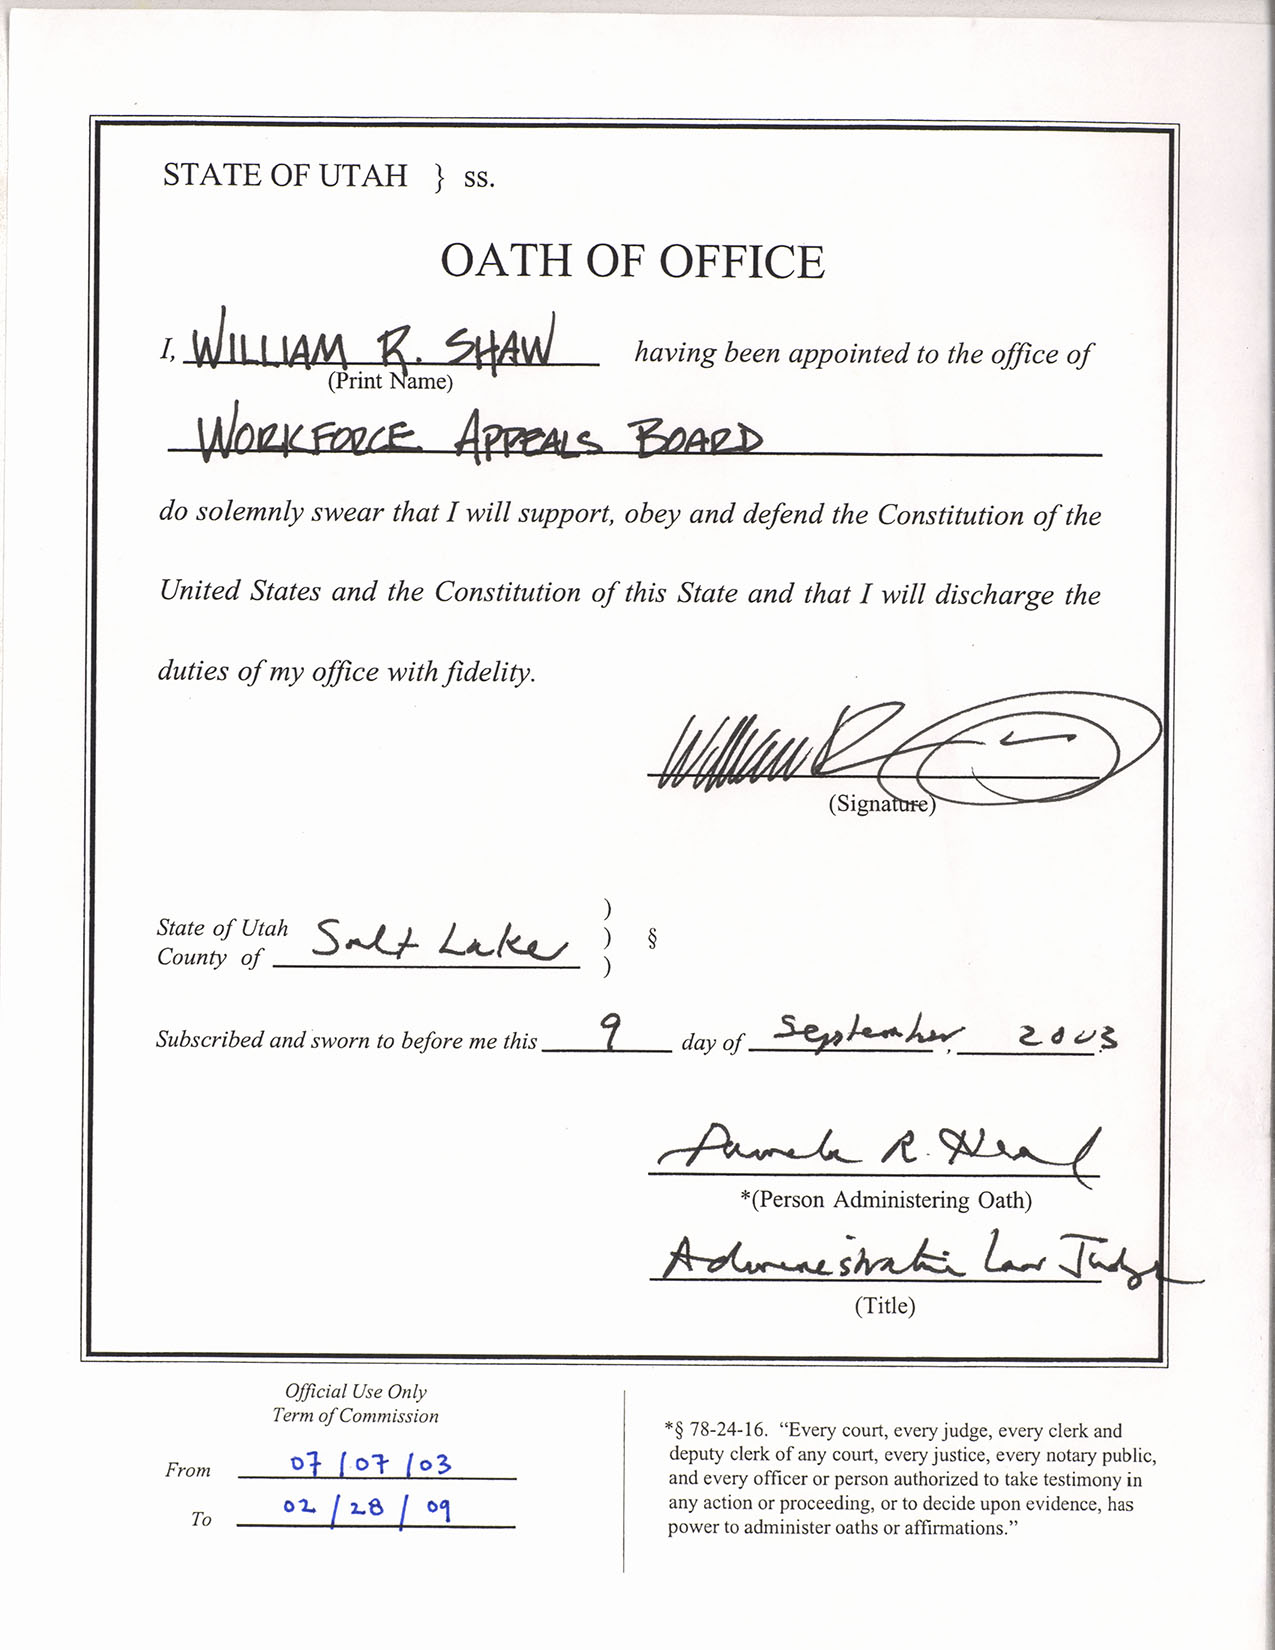 STATE OF UTAH } ss.
OATH OF OFFICE
I, WILLIAM R. SHAW having been appointed to the office of
(Print Name)
WORKFORCE APPEALS BOARD
do solemnly swear that I will support, obey and defend the Constitution of the
United States and the Constitution of this State and that I will discharge the
duties of my office with fidelity.
William R
(Signature)
State of Utah )
County of Salt Lake ) §
)
Subscribed and sworn to before me this 9 day of September, 2003
Pamela R. Neal
*(Person Administering Oath)
Administrative Law Judge
(Title)
Official Use Only
Term of Commission
From 07/07/03
To 02/28/09
*§ 78-24-16. “Every court, every judge, every clerk and
deputy clerk of any court, every justice, every notary public,
and every officer or person authorized to take testimony in
any action or proceeding, or to decide upon evidence, has
power to administer oaths or affirmations.”